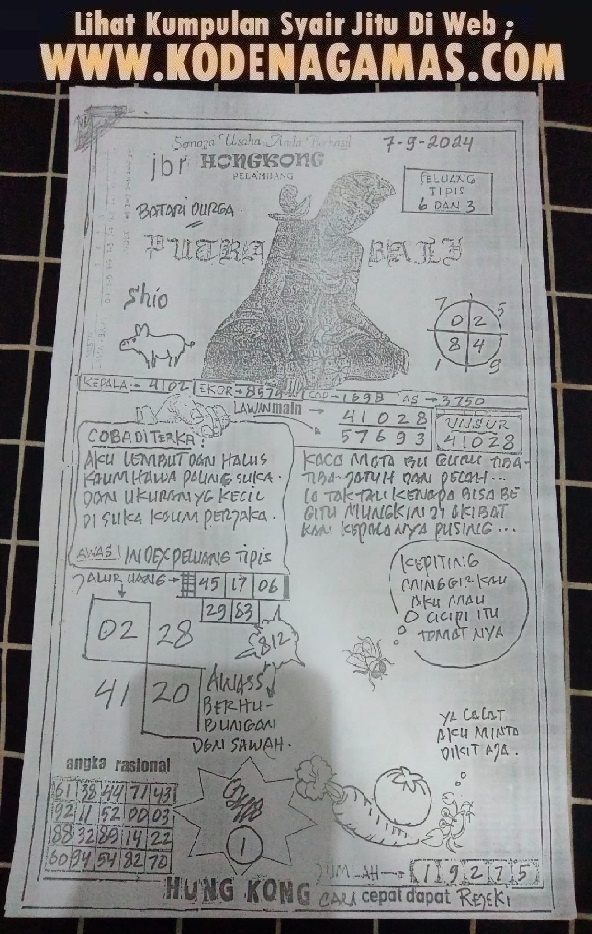 Lihat Kumpulan Syair Jitu Di Web ;
WWW.KODENAGAMAS.COM
Semoga Usaha Anda Berhasil
7-9-2024
jbr HONGKONG
PELAMBANG
PELUANG
TIPIS
6 DAN 3
BATARI DURGA
PUTRA BALI
Shio
7 5
0 2
8 4
1 9
KEPALA:- 4102
EKOR→
COP→1698
AS→3750
LAWANmain →
41028
57693
UNSUR
41028
COBA DITERKA:
AKU LEMBUT DAN HALUS
KAUM HAWA PALING SUKA.
DAN UKURAN YG KECIL
DI SUKA KAUM PERJAKA.
KACA MATA BU GURU TIBA-
TIBA JATUH DAN PECAH...
KENAPA BISA BE
GITU MUNGKIN AKIBAT
KAN KEPALANYA PUSING...
AWAS! INDEX PELUANG TIPIS
JALUR UANG→ 45 17 06
29 83
02 28
41 20
812
AWASS
BERHU-
BUNGAN
DGN SAWAH.
KEPITING
MINGGIR KAU
AKU MAU
CICIPI ITU
TOMATNYA
YA CACAT
AKU MINTA
DIKIT AJA.
angka rasional
61 38 44 71 43
92 11 52 00 03
88 32 85 14 22
60 94 54 82 70
1
JUMLAH→ 1 9 2 7 5
HUNG KONG CARI cepat dapat REJEKI